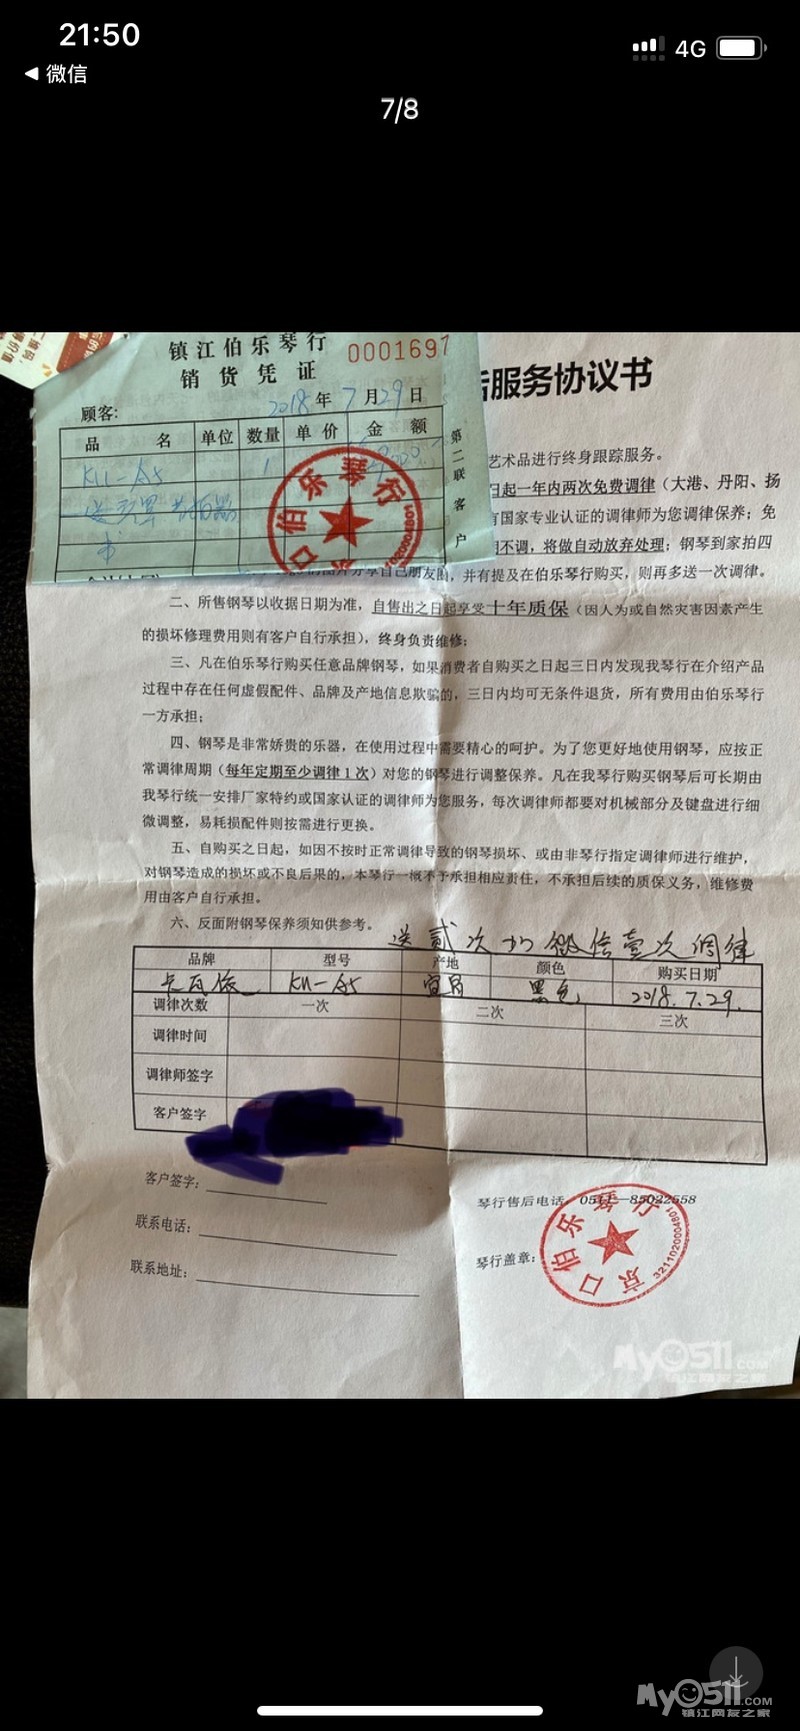 21:50
4G
微信
7/8
镇江伯乐琴行
0001697
销货凭证
后服务协议书
顾客:
2018年7月29日
品名 单位 数量 单价 金额
第二联 客户
KU-A5 1
送琴罩 节拍器
书
艺术品进行终身跟踪服务。
日起一年内两次免费调律（大港、丹阳、扬
有国家专业认证的调律师为您调律保养；免
不调，将做自动放弃处理；钢琴到家拍四
图片分享自己朋友圈，并有提及在伯乐琴行购买，则再多送一次调律。
二、所售钢琴以收据日期为准，自售出之日起享受十年质保（因人为或自然灾害因素产生
的损坏修理费用则有客户自行承担），终身负责维修；
三、凡在伯乐琴行购买任意品牌钢琴，如果消费者自购买之日起三日内发现我琴行在介绍产品
过程中存在任何虚假配件、品牌及产地信息欺骗的，三日内均可无条件退货，所有费用由伯乐琴行
一方承担；
四、钢琴是非常娇贵的乐器，在使用过程中需要精心的呵护。为了您更好地使用钢琴，应按正
常调律周期（每年定期至少调律1次）对您的钢琴进行调整保养。凡在我琴行购买钢琴后可长期由
我琴行统一安排厂家特约或国家认证的调律师为您服务，每次调律师都要对机械部分及键盘进行细
微调整，易耗损配件则按需进行更换。
五、自购买之日起，如因不按时正常调律导致的钢琴损坏、或由非琴行指定调律师进行维护，
对钢琴造成的损坏或不良后果的，本琴行一概不予承担相应责任，不承担后续的质保义务，维修费
用由客户自行承担。
六、反面附钢琴保养须知供参考。
送贰次 微信壹次调律
品牌 型号 产地 颜色 购买日期
卡瓦依 KU-A5 宜昌 黑色 2018.7.29.
调律次数 一次 二次 三次
调律时间
调律师签字
客户签字
客户签字：
琴行售后电话：0511—85022558
联系电话：
琴行盖章：
联系地址：
京口伯乐琴行
3211020004801
My0511.COM
镇江网友之家
My0511.COM
镇江网友之家